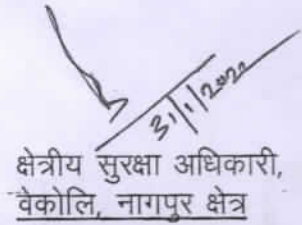 31/1/2020
क्षेत्रीय सुरक्षा अधिकारी,
वेकोलि, नागपुर क्षेत्र